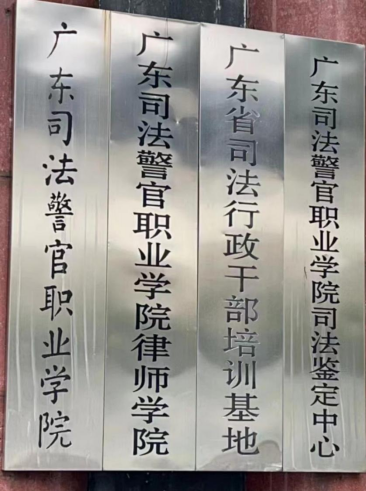 广东司法警官职业学院
广东司法警官职业学院律师学院
广东省司法行政干部培训基地
广东司法警官职业学院司法鉴定中心